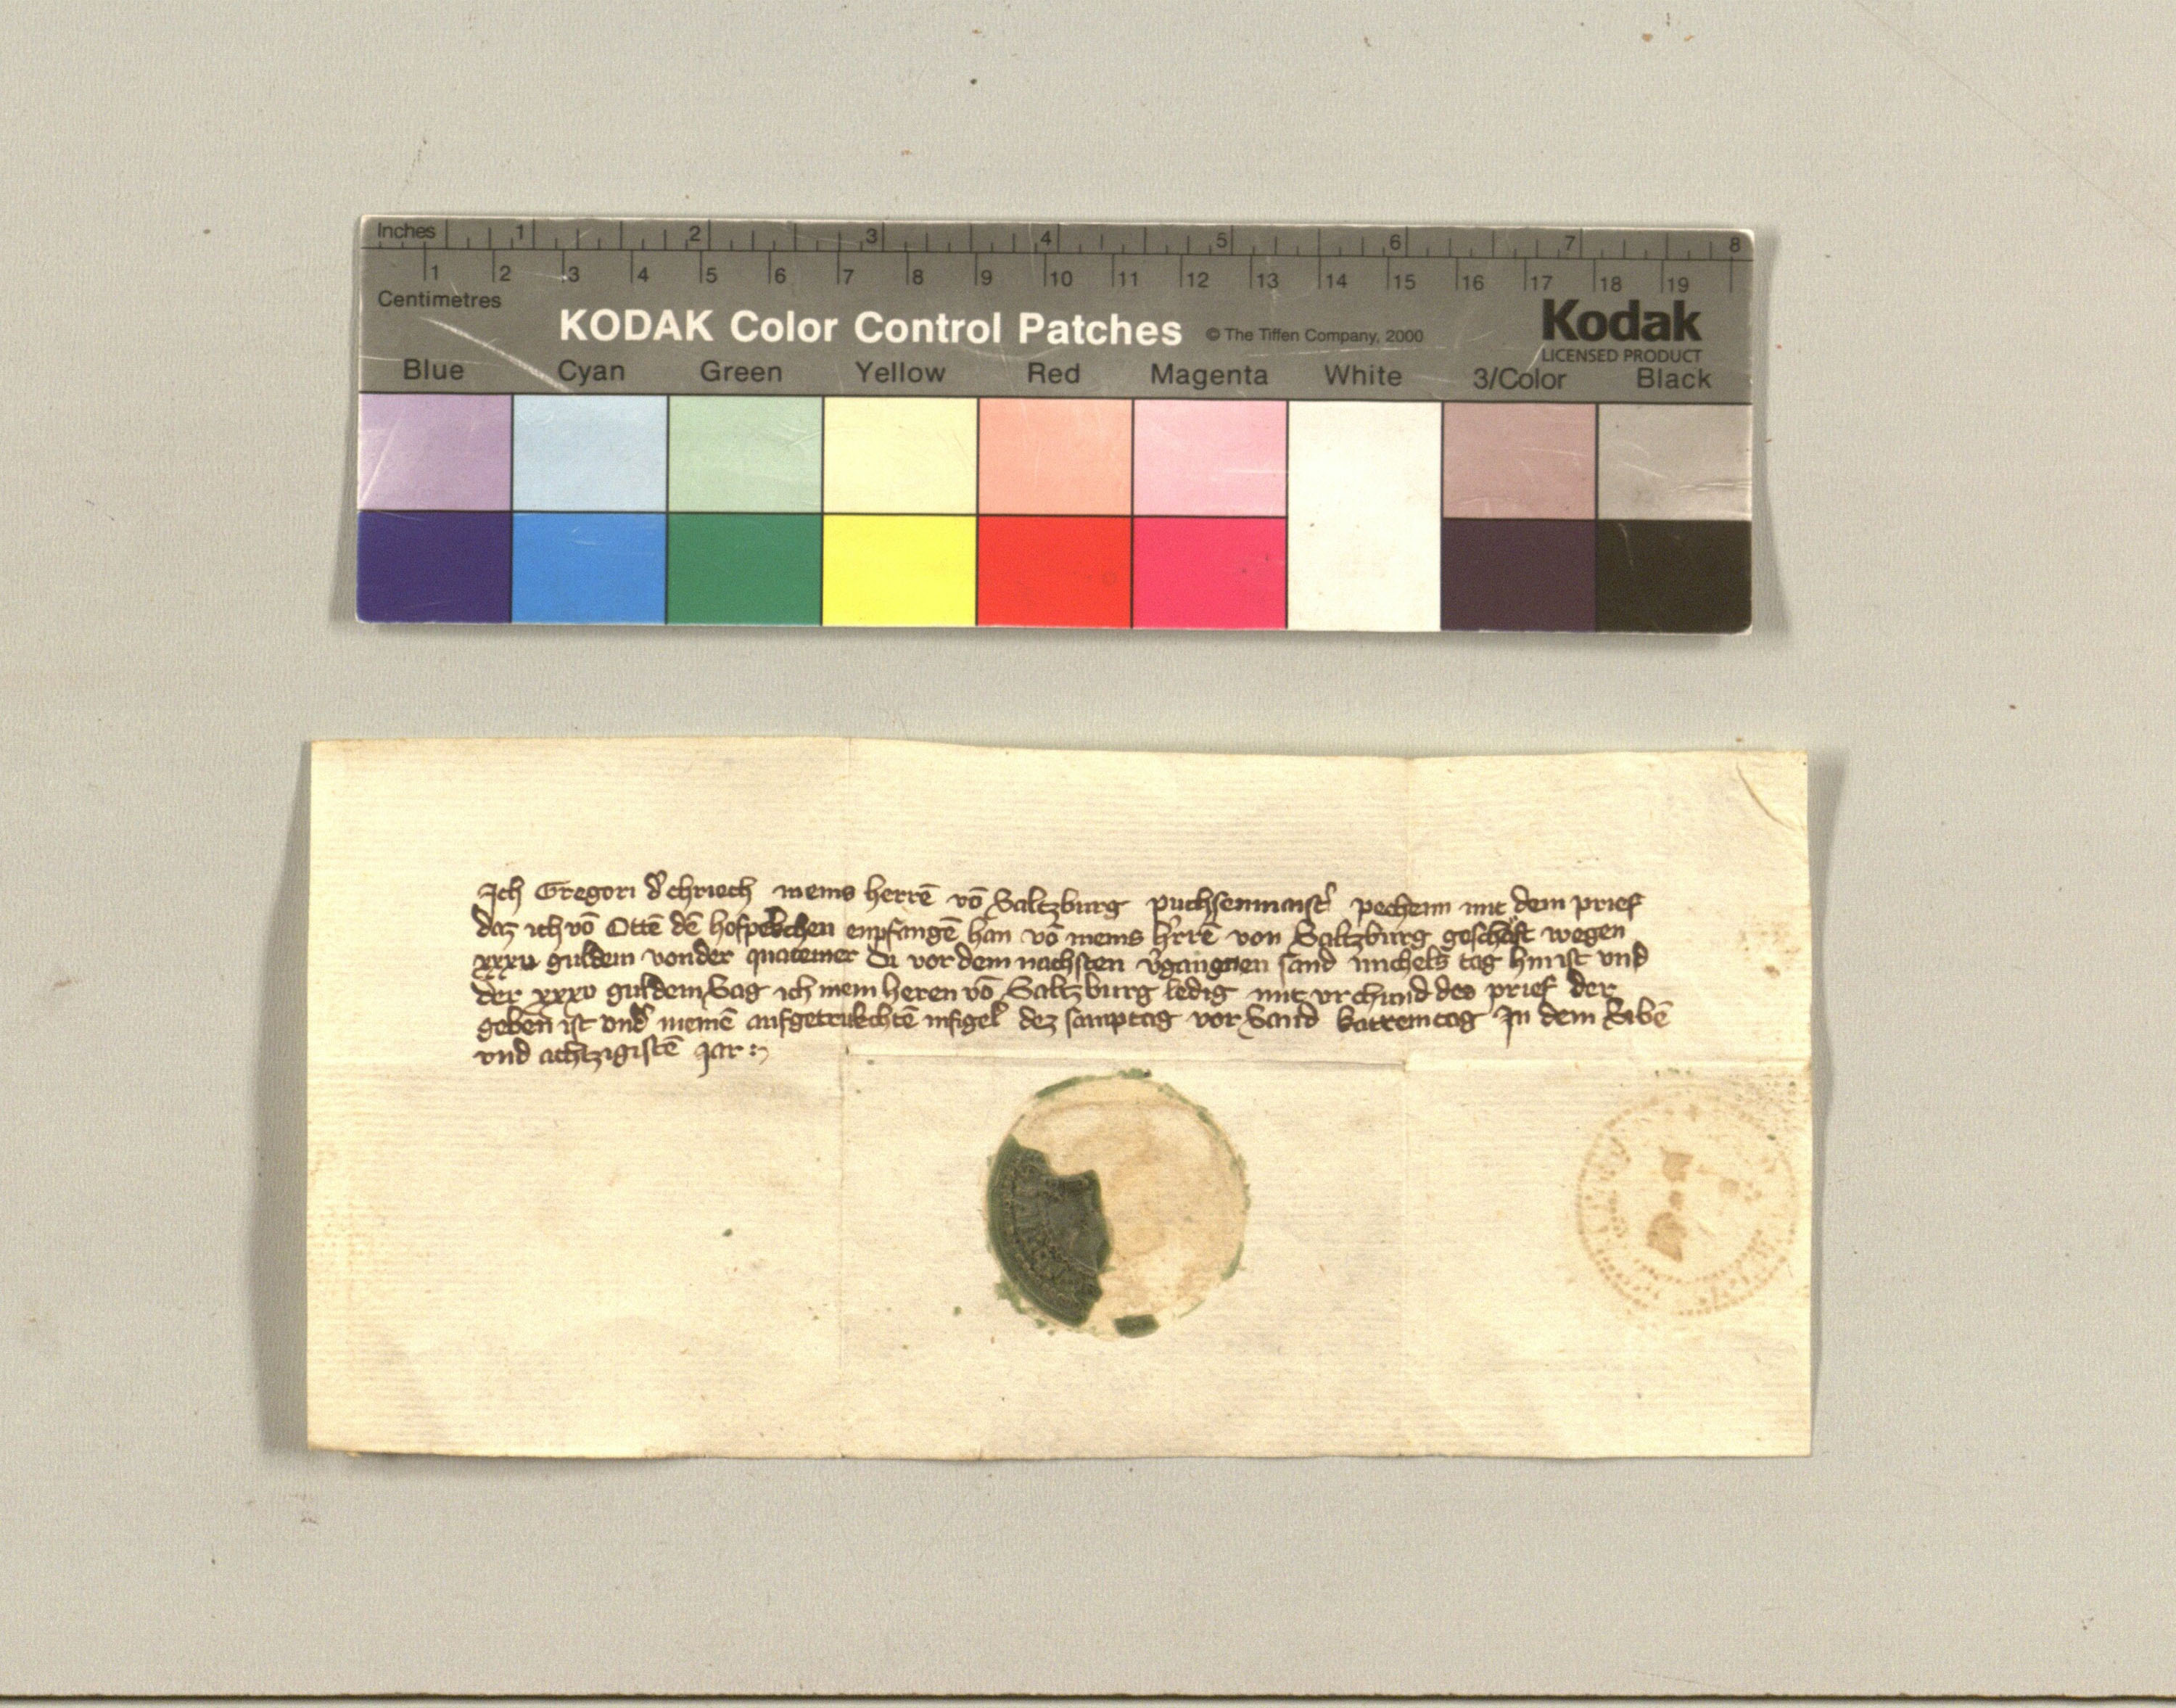 Inches 1 2 3 4 5 6 7 8
1 2 3 4 5 6 7 8 9 10 11 12 13 14 15 16 17 18 19
Centimetres
KODAK Color Control Patches © The Tiffen Company, 2000 Kodak
LICENSED PRODUCT
Blue Cyan Green Yellow Red Magenta White 3/Color Black
Ich Gregori d' chriech meins herrē vō Saltzburg puchsenmaist' pechenn mit dem prief
daz ich vō Ottē dē hofpekchen enpfangē han vō meins h'rrē von Saltzburg geschäft wegen
xxxv guldein von der quatemer di vor dem nachsten v'gangnen sand michels tag hin ist vnd
der xxxv guldein Sag ich mein heren vō Saltzburg ledig mit vrchund des prief der
geben ist vnd' meinē aufgetrukchtē insigel dez samptag vor Sand katreintag In dem Sibē
vnd achtzigistē jar :~